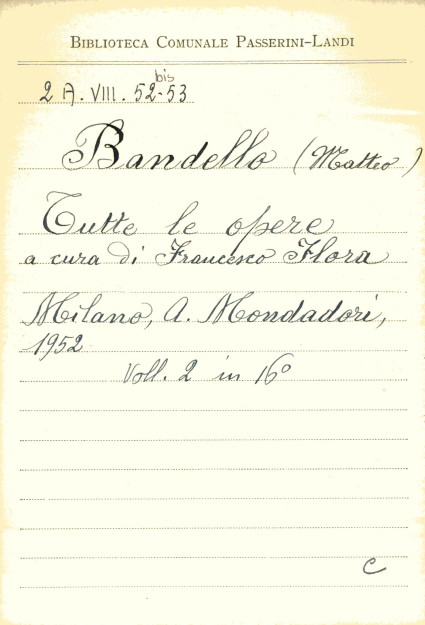 BIBLIOTECA COMUNALE PASSERINI-LANDI
2 A. VIII. 52 bis - 53
Bandello (Matteo)
Tutte le opere
a cura di Francesco Flora
Milano, A. Mondadori,
1952
Voll. 2 in 16º
C